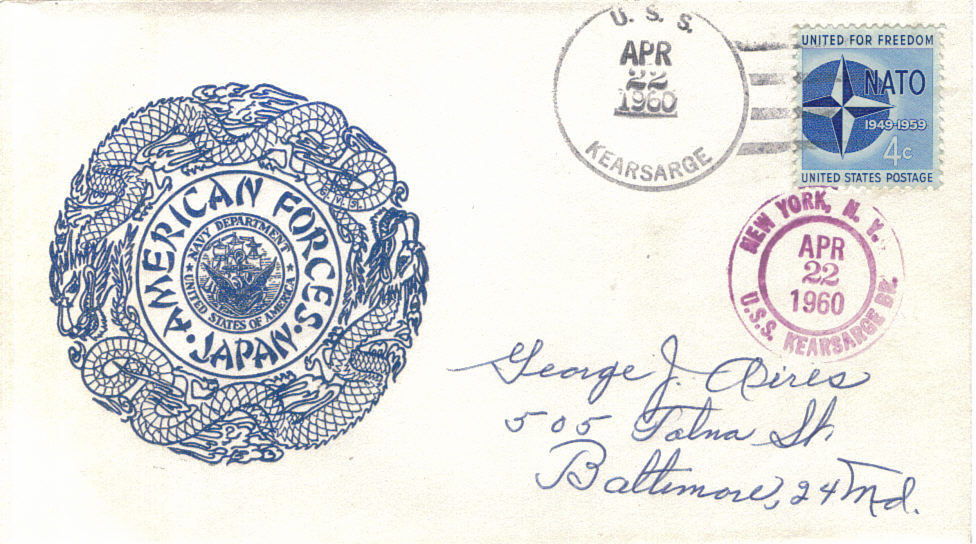 U. S. S.
APR
22
1960
KEARSARGE
UNITED FOR FREEDOM
NATO
1949-1959
4c
UNITED STATES POSTAGE
NEW YORK, N. Y.
APR
22
1960
U.S.S. KEARSARGE BR.
AMERICAN FORCES
• JAPAN •
NAVY DEPARTMENT
★ UNITED STATES OF AMERICA ★
George J. Aires
505 Talna St.
Baltimore, 24 Md.